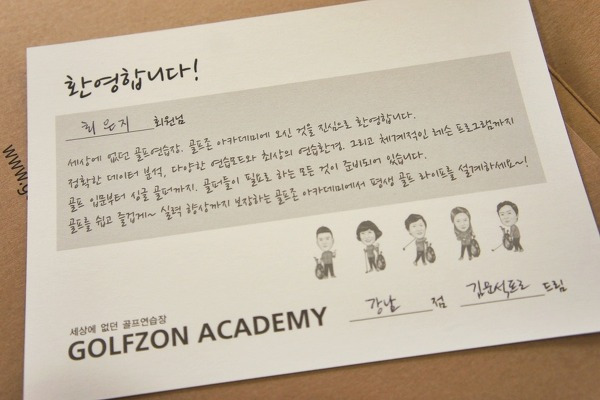 환영합니다!
최은지 회원님
세상에 없던 골프연습장. 골프존 아카데미에 오신 것을 진심으로 환영합니다.
정확한 데이터 분석, 다양한 연습모드와 최상의 연습환경. 그리고 체계적인 레슨 프로그램까지
골프 입문부터 싱글 골퍼까지. 골퍼들이 필요로 하는 모든 것이 준비되어 있습니다.
골프를 쉽고 즐겁게~ 실력 향상까지 보장하는 골프존 아카데미에서 평생 골프 라이프를 설계하세요~!
강남 점 김문석프로 드림
세상에 없던 골프연습장
GOLFZON ACADEMY
www.g